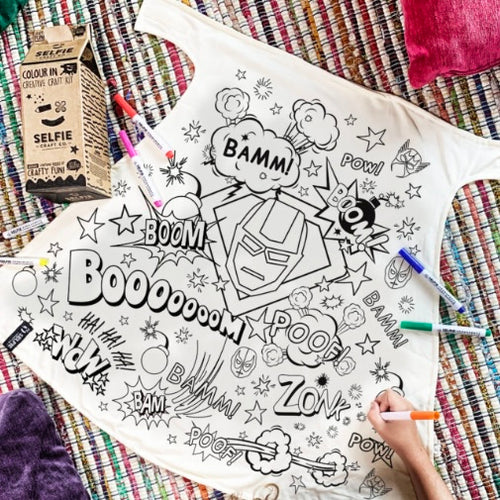 SELFIE
CRAFT CO.
COLOUR IN
CREATIVE CRAFT KIT
SELFIE
CRAFT CO.
CRAFTY FUN!
BAMM!
POW!
BOOM
BOOM
BOOOOOOOM
BAMM!
HA! HA! HA!
POOF!
WOW
BAMM!
BAM
ZONK
POOF!
POW!